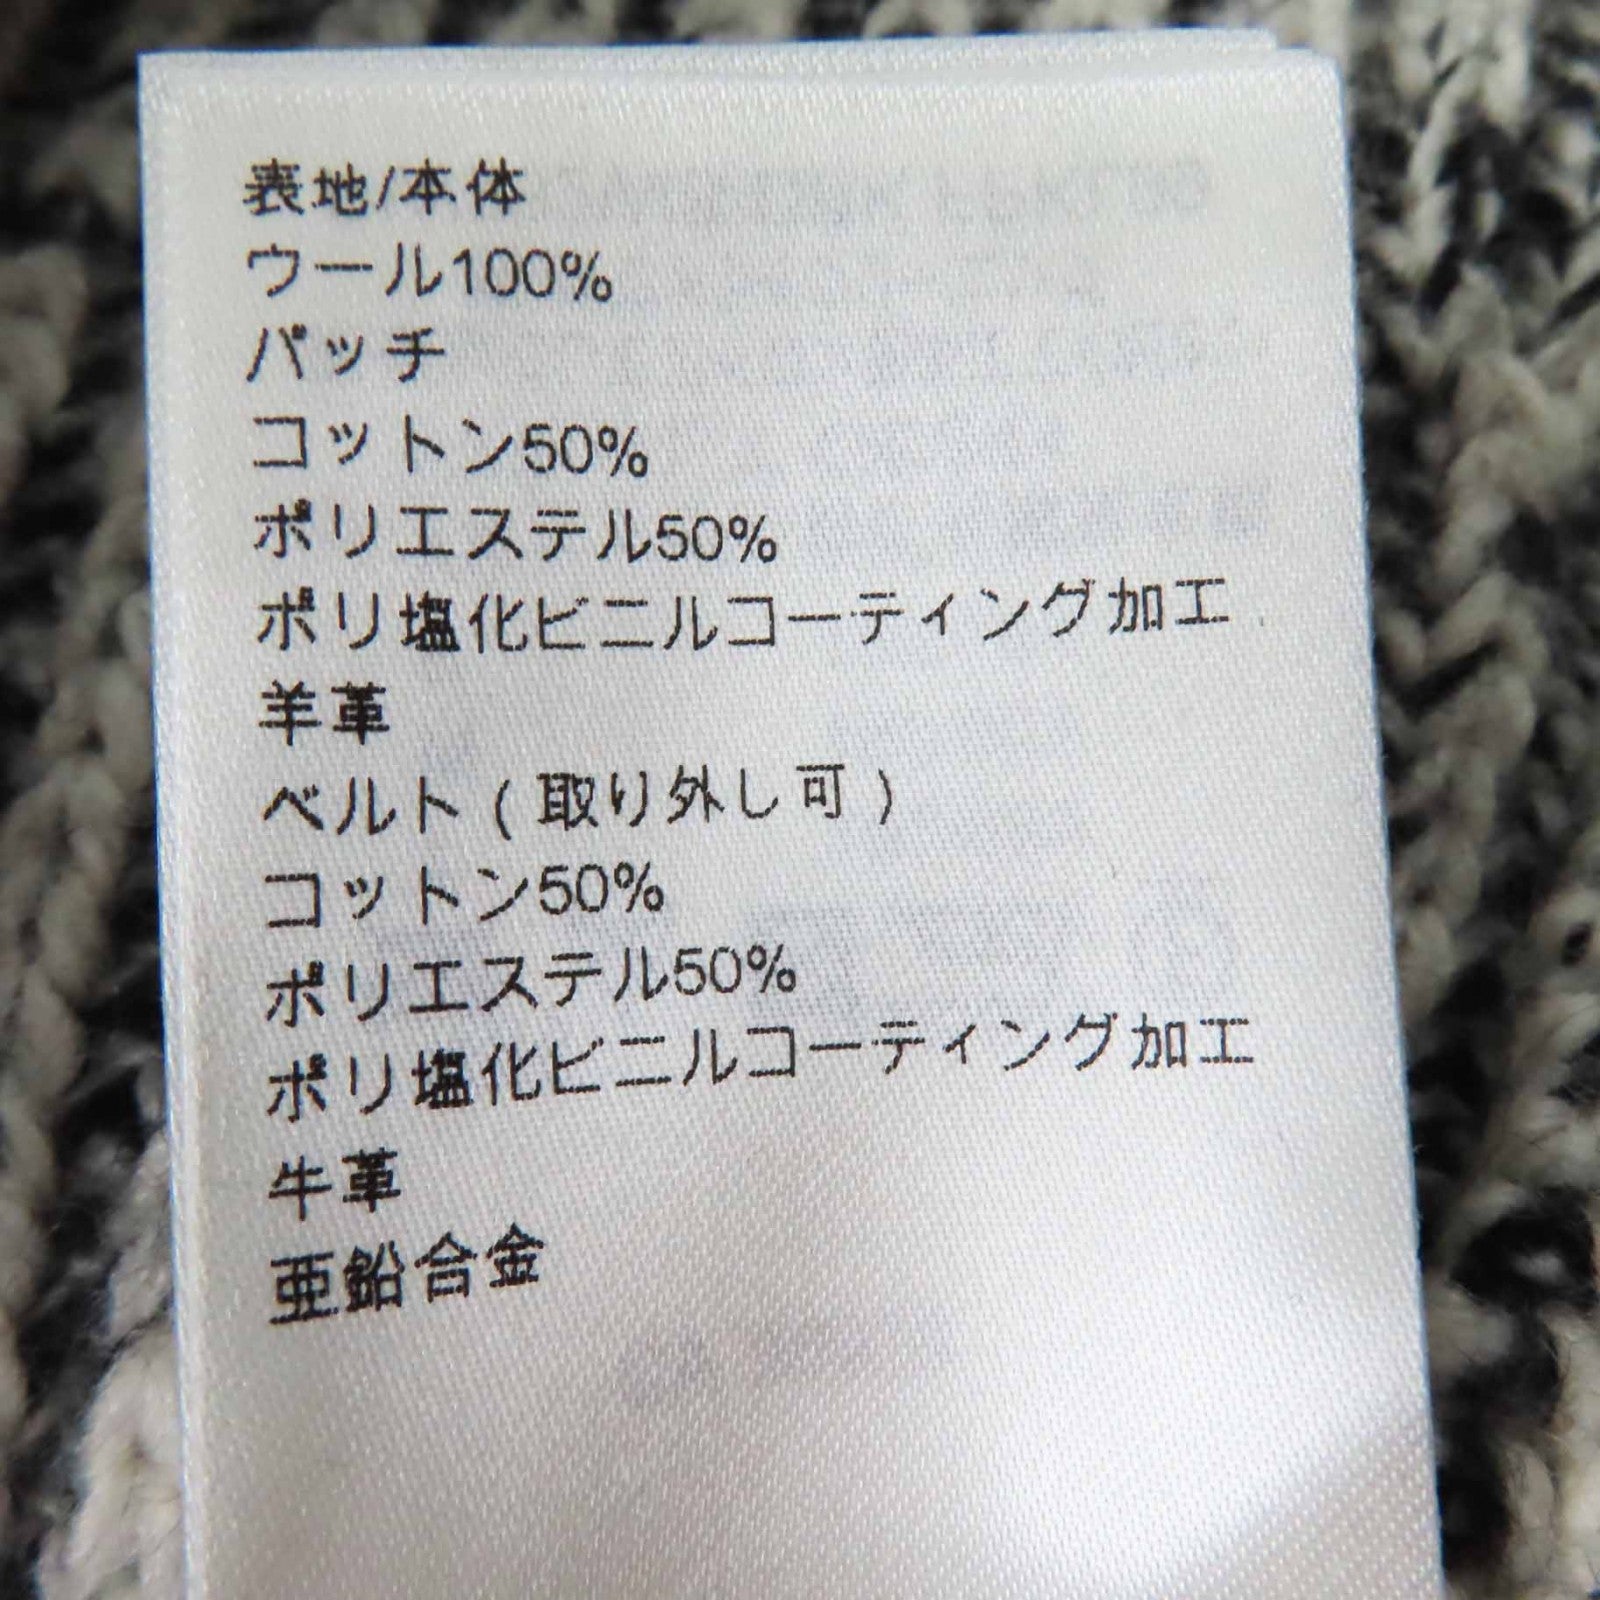 表地/本体
ウール100%
パッチ
コットン50%
ポリエステル50%
ポリ塩化ビニルコーティング加工
羊革
ベルト(取り外し可)
コットン50%
ポリエステル50%
ポリ塩化ビニルコーティング加工
牛革
亜鉛合金